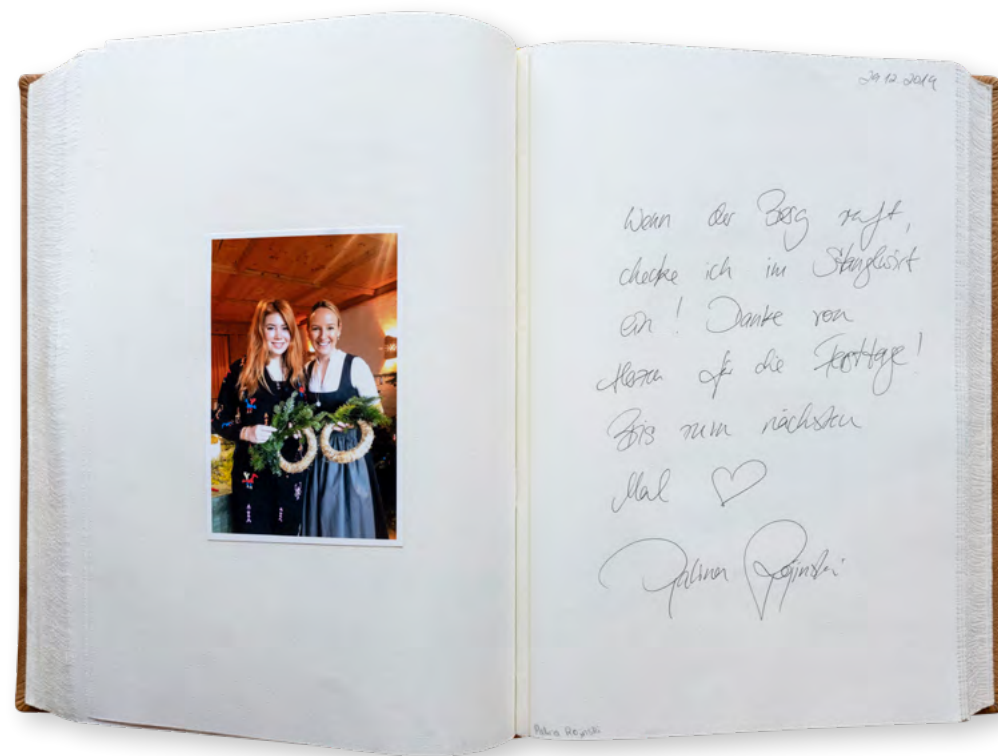 29.12.2019
Wenn der Berg ruft,
checke ich im Stanglwirt
ein! Danke von
Herzen für die Festtage!
Bis zum nächsten
Mal ♡
Palina Rojinski
Palina Rojinski